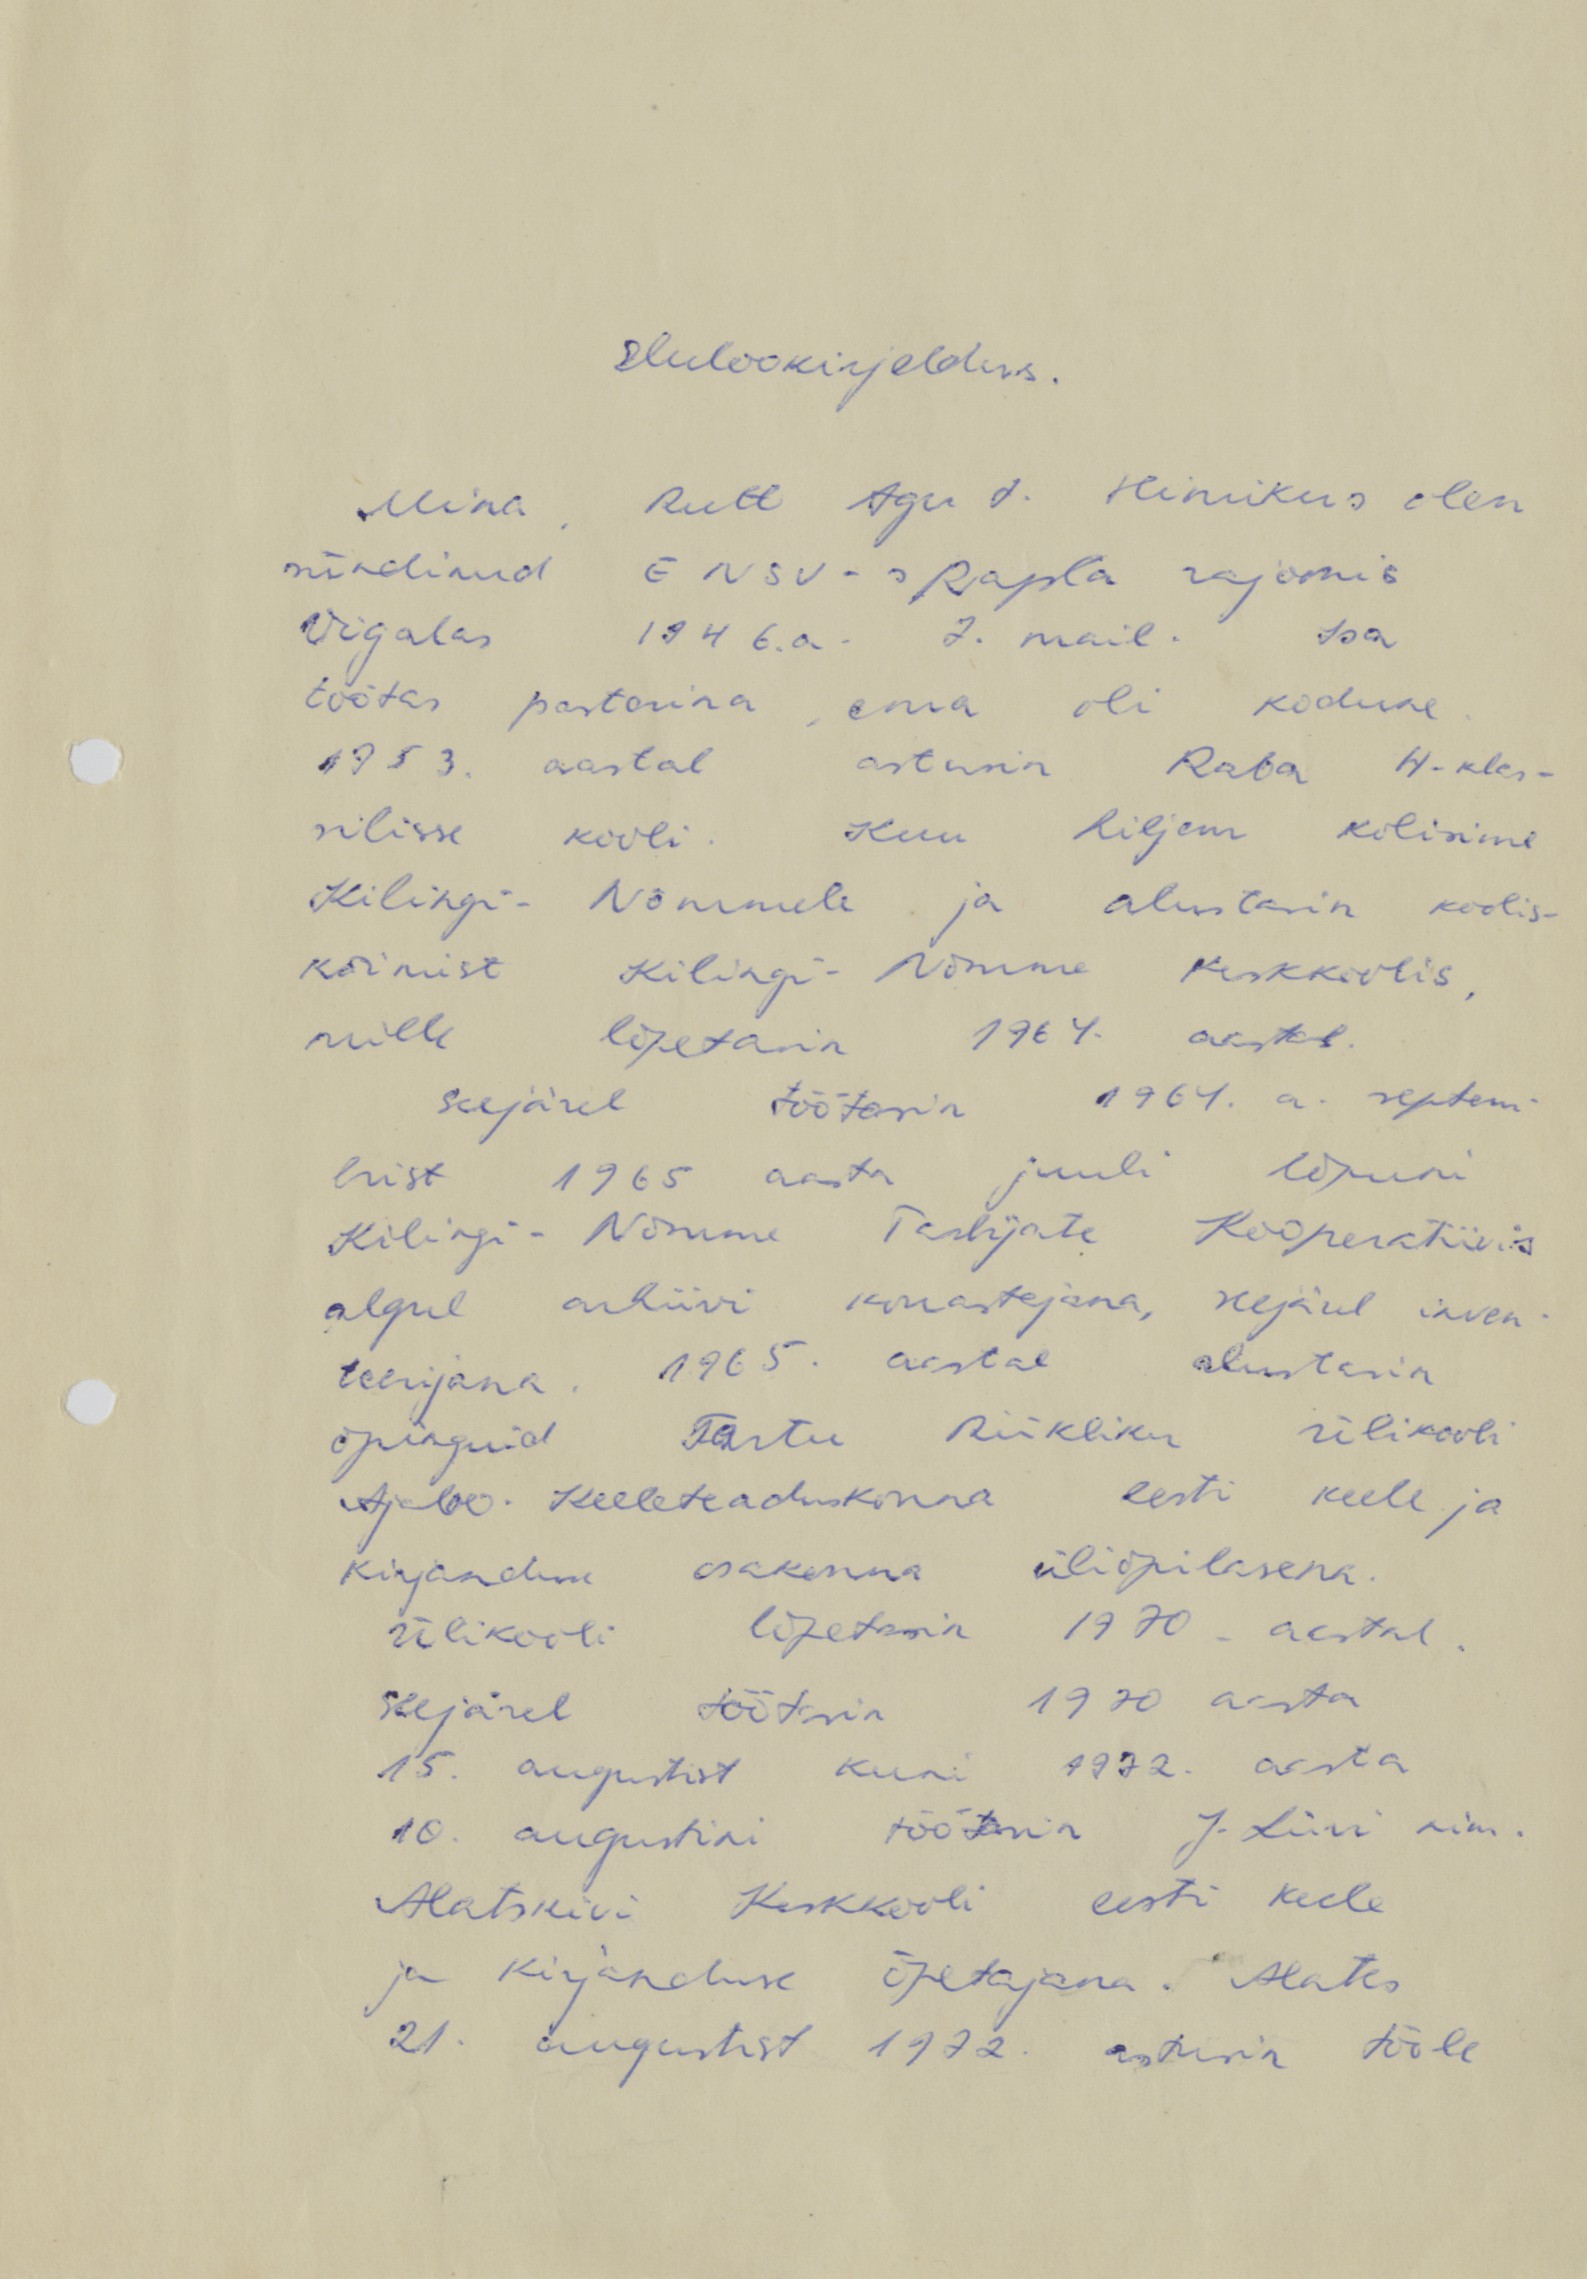 Elulookirjeldus.
Mina, Rutt Agu t. Hinrikus olen
sündinud ENSV-s Rapla rajoonis
Vigalas 1946.a. 7. mail. Isa
töötas pastorina, ema oli kodune.
1953. aastal astusin Raba 4-klas-
silisse kooli. Kuu hiljem kolisime
Kilingi-Nõmmele ja alustasin koolis-
käimist Kilingi-Nõmme Keskkoolis,
mille lõpetasin 1964. aastal.
Seejärel töötasin 1964. a. septem-
brist 1965 aasta juuli lõpuni
Kilingi-Nõmme Tarbijate Kooperatiivis
algul arhiivi korrastajana, seejärel inven-
teerijana. 1965. aastal alustasin
õpinguid Tartu Riikliku Ülikooli
Ajaloo-Keeleteaduskonna eesti keele ja
kirjanduse osakonna üliõpilasena.
Ülikooli lõpetasin 1970. aastal.
Seejärel töötasin 1970 aasta
15. augustist kuni 1972. aasta
10. augustini töötasin J. Liivi nim.
Alatskivi Keskkooli eesti keele
ja kirjanduse õpetajana. Alates
21. augustist 1972. astusin tööle